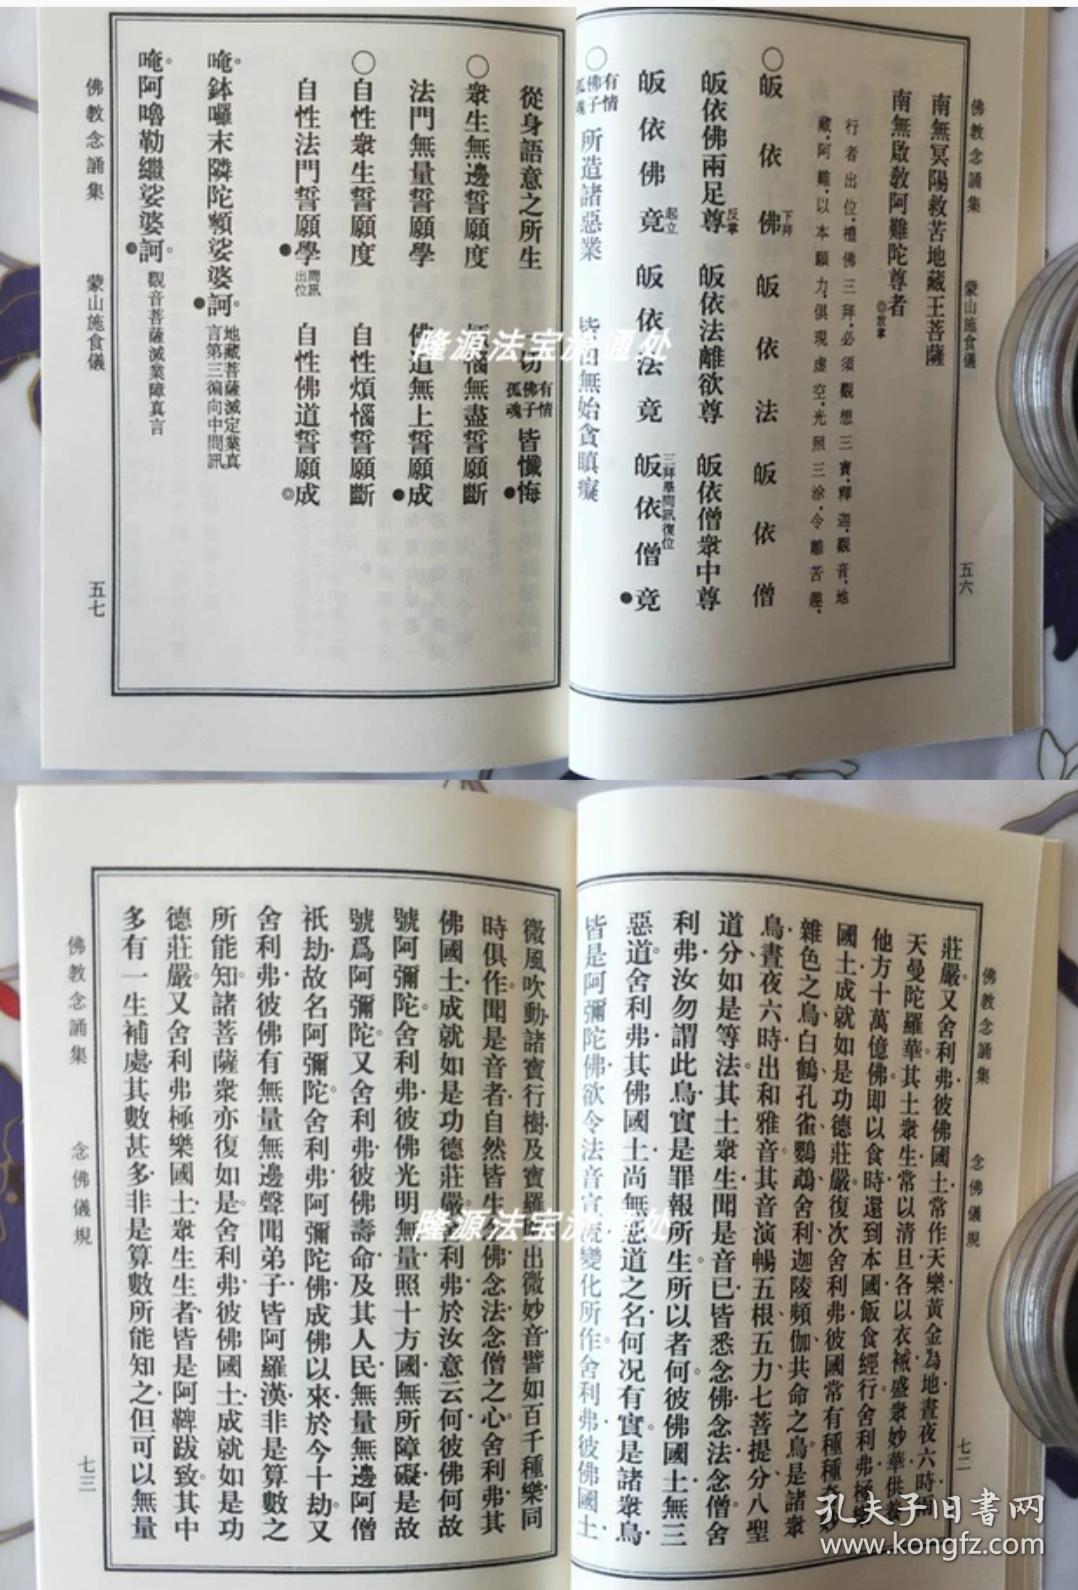 佛教念誦集 蒙山施食儀 五六
南無冥陽救苦地藏王菩薩
南無啟教阿難陀尊者◎放掌
行者出位，禮佛三拜，必須觀想三寶，釋迦，觀音，地
藏，阿難，以本願力，俱現虛空，光照三涂，令離苦趣，
○皈依佛下拜 皈依法 皈依僧
皈依佛兩足尊反掌 皈依法離欲尊 皈依僧衆中尊
皈依佛竟起立 皈依法竟 皈依僧竟三拜畢問訊復位●
○有情佛子孤魂所造諸惡業 皆由無始貪瞋癡
從身語意之所生 一切有情佛子孤魂皆懺悔●
○衆生無邊誓願度 煩惱無盡誓願斷
法門無量誓願學 佛道無上誓願成●
○自性衆生誓願度 自性煩惱誓願斷
自性法門誓願學●問訊出位 自性佛道誓願成◎
唵鉢囉末隣陀顙娑婆訶●地藏菩薩滅定業真言第三徧向中問訊
唵阿嚕勒繼娑婆訶●觀音菩薩滅業障真言
佛教念誦集 蒙山施食儀 五七
隆源法宝流通处
佛教念誦集 念佛儀規 七二
莊嚴。又舍利弗彼佛國土常作天樂黃金為地晝夜六時
天曼陀羅華其土衆生常以清旦各以衣裓盛衆妙華供養
他方十萬億佛即以食時還到本國飯食經行舍利弗極樂
國土成就如是功德莊嚴復次舍利弗彼國常有種種奇妙
雜色之鳥白鶴孔雀鸚鵡舍利迦陵頻伽共命之鳥是諸衆
鳥晝夜六時出和雅音其音演暢五根五力七菩提分八聖
道分如是等法其土衆生聞是音已皆悉念佛念法念僧舍
利弗汝勿謂此鳥實是罪報所生所以者何彼佛國土無三
惡道舍利弗其佛國土尚無惡道之名何况有實是諸衆鳥
皆是阿彌陀佛欲令法音宣流變化所作舍利弗彼佛國土
微風吹動諸寶行樹及寶羅網出微妙音譬如百千種樂同
時俱作聞是音者自然皆生念佛念法念僧之心舍利弗其
佛國土成就如是功德莊嚴舍利弗於汝意云何彼佛何故
號阿彌陀舍利弗彼佛光明無量照十方國無所障礙是故
號爲阿彌陀又舍利弗彼佛壽命及其人民無量無邊阿僧
祇劫故名阿彌陀舍利弗阿彌陀佛成佛以來於今十劫又
舍利弗彼佛有無量無邊聲聞弟子皆阿羅漢非是算數之
所能知諸菩薩衆亦復如是舍利弗彼佛國土成就如是功
德莊嚴又舍利弗極樂國土衆生生者皆是阿鞞跋致其中
多有一生補處其數甚多非是算數所能知之但可以無量
佛教念誦集 念佛儀規 七三
隆源法宝流通处
孔夫子旧书网
www.kongfz.com